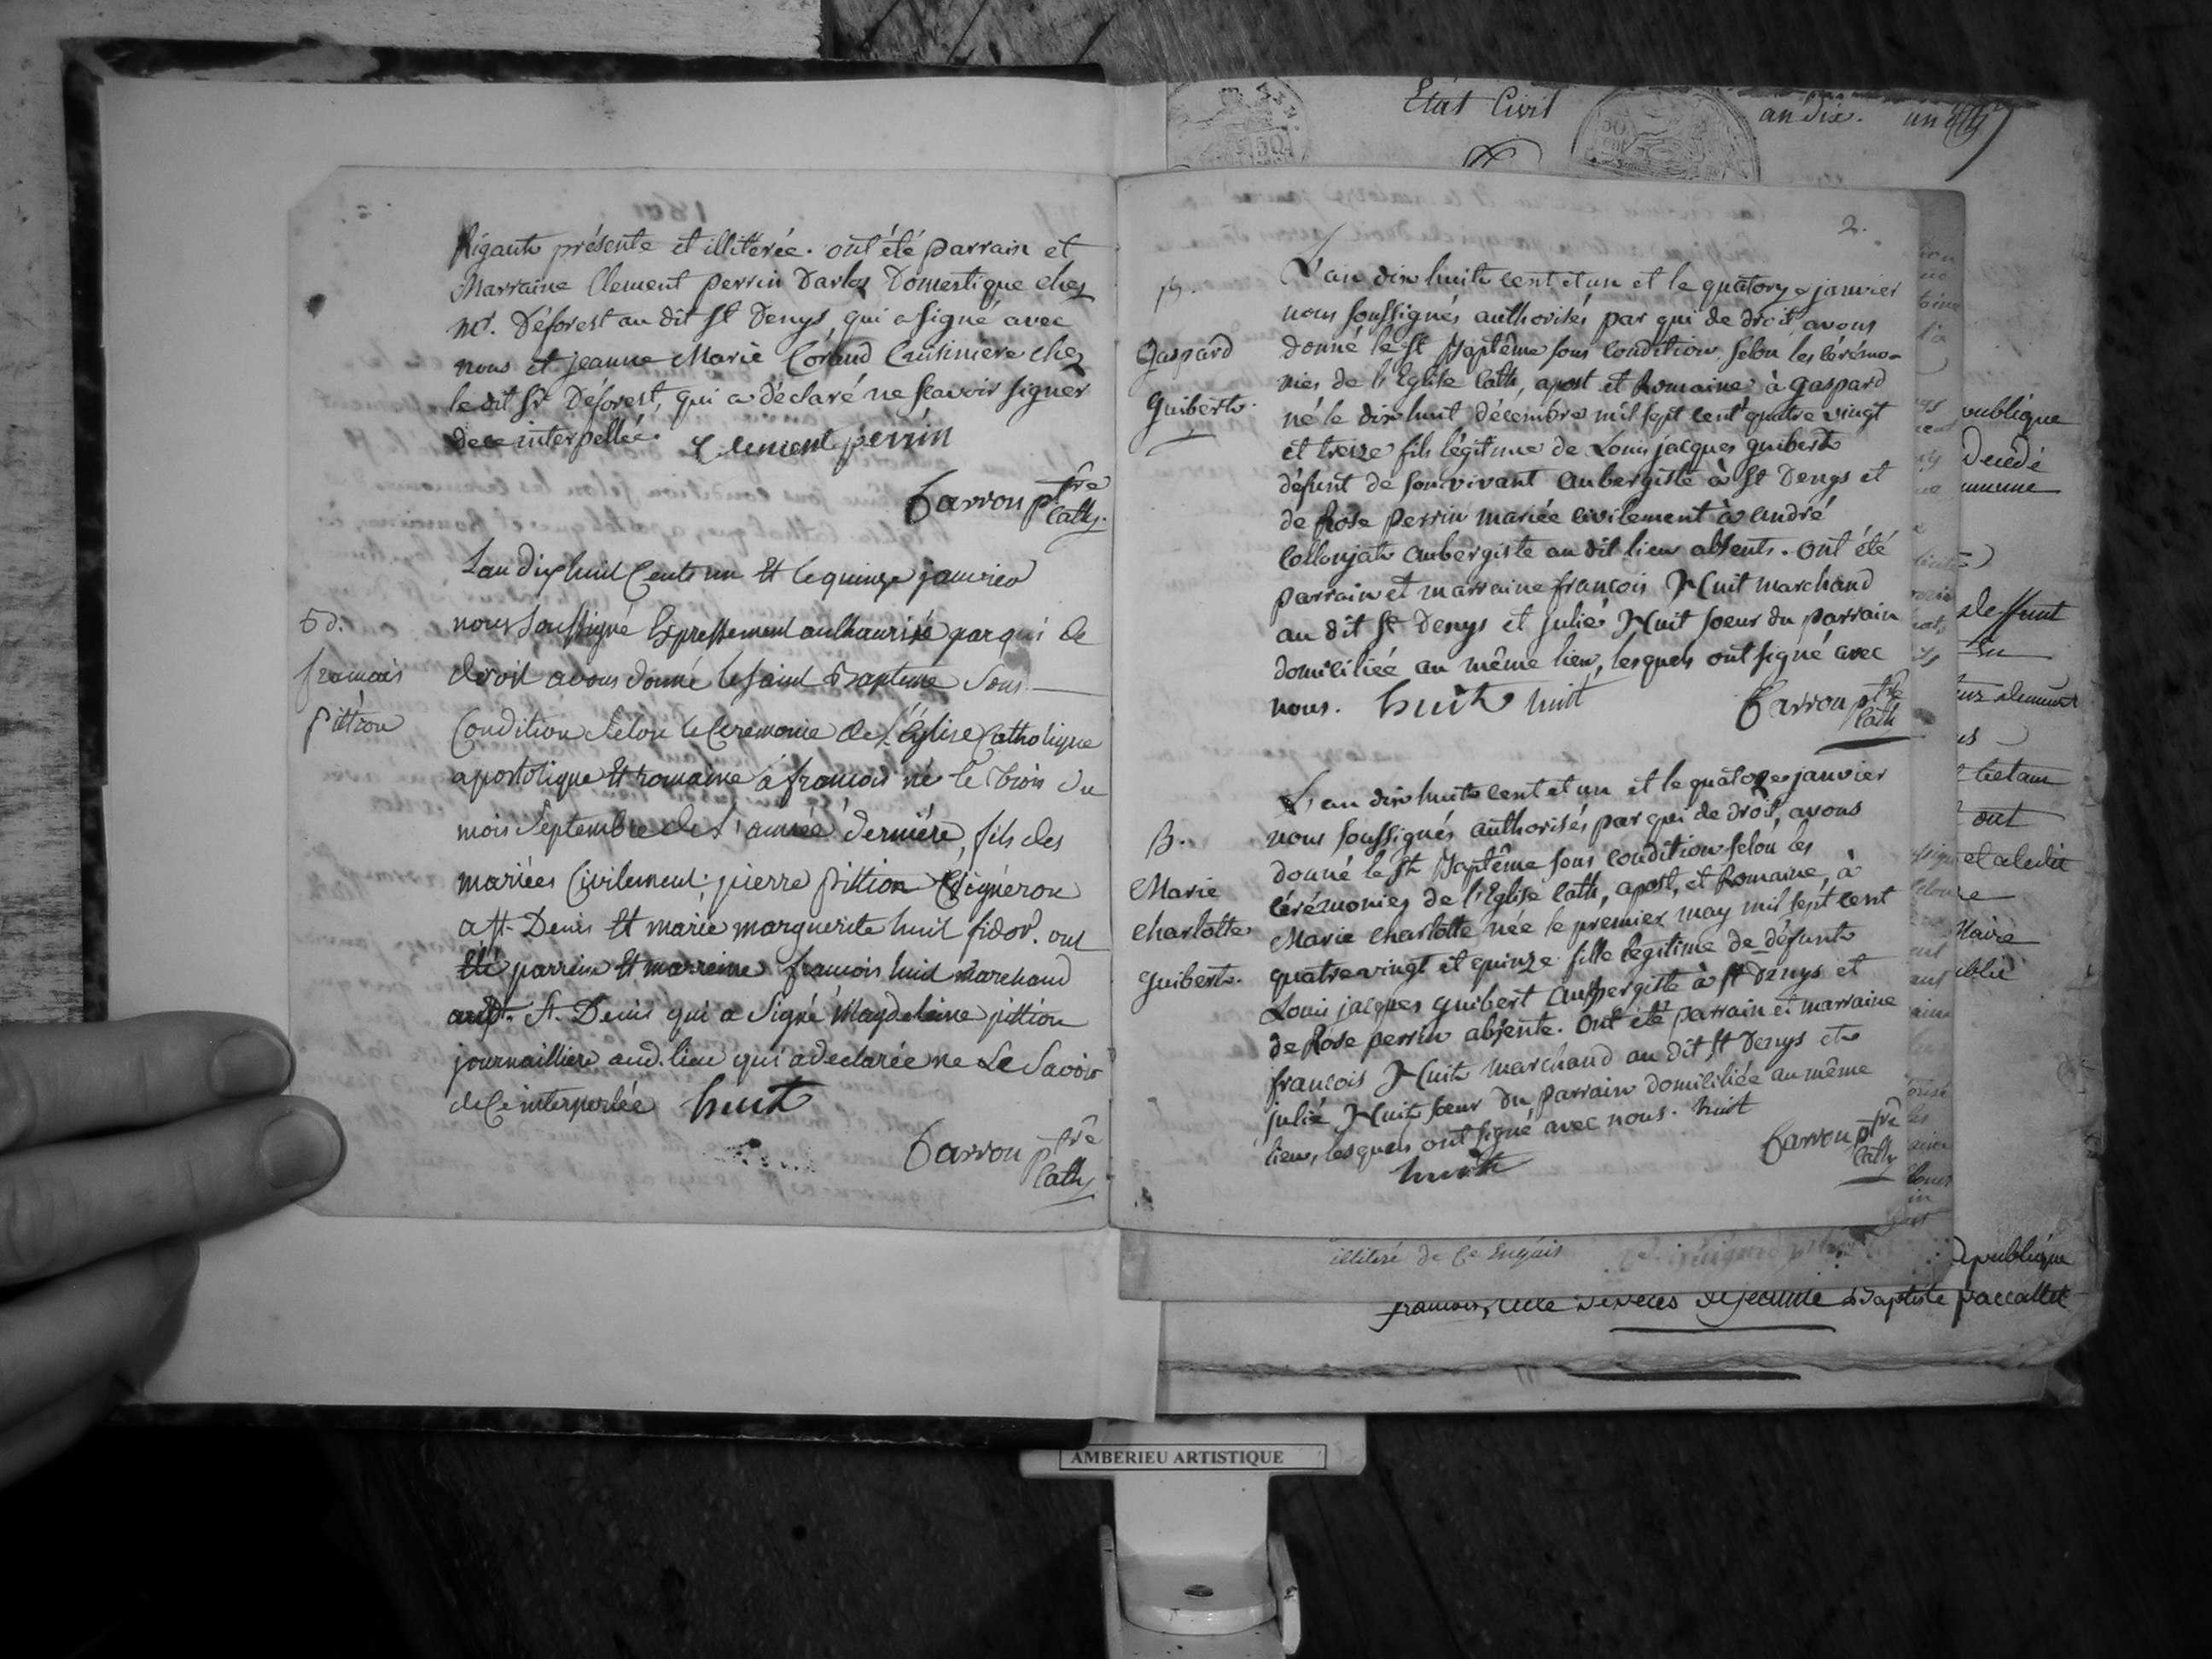 Rigaute présente et illitérée. ont été parrain et
Marraine Clement perrin Darlos Domestique chez
mr. Déforest au dit St Denys, qui a signé avec
nous et jeanne Marie Corand Cuisinière chez
le dit Sr Déforest, qui a déclaré ne scavoir signer
de ce interpellée. Clement perrin
Carron ptre
cath.
Bd.
francois
pittion
Lan dix huit Cents un Et le quinze janvier
nous Soussigné Expressement authaurisé par qui de
droit avons donné le saint Baptême Sous
Condition Selon le Ceremonie de L'Église Catholique
apostolique Et romaine à francois né le trois du
mois Septembre de L'année dernière, fils des
mariées Civilement pierre pittion Vigneron
a St. Denis Et marie marguerite huit fidor. ont
été parrein Et marreine francois huit marchand
aud. St. Denis qui a Signé Magdeleine pittion
journaillière aud. lieu qui a declarée ne Le Savoir
de Ce interpertée huit
Carron ptre
Cath
État Civil
an dix. un
2.
B.
Gaspard
Guibert.
L'an dix huit cent et un et le quatorze janvier
nous soussignés authorisés par qui de droit avons
donné le St Baptême sous condition selon les cérémo-
nies de l'Eglise Cath, apost et Romaine à Gaspard
né le dix huit décembre mil sept cent quatre vingt
et treize fils légitime de Louis jacques guibert
défunt de son vivant aubergiste à St Denys et
de Rose perrin mariée civilement à andré
Collonjat aubergiste au dit lieu absents. ont été
parrain et marraine francois Huit marchand
au dit St Denys et julie Huit soeur du parrain
domiciliée au même lieu, lesquels ont signé avec
nous. huit huit
Carron ptre
Cath
B.
Marie
charlotte
guibert.
L'an dix huit cent et un et le quatorze janvier
nous soussignés authorisés par qui de droit, avons
donné le St Baptême sous condition selon les
cérémonies de l'Eglise Cath, apost, et Romaine, à
Marie charlotte née le premier may mil sept cent
quatre vingt et quinze fille légitime de défunt
Louis jacques guibert aubergiste à St Denys et
de Rose perrin absente. Ont été parrain et marraine
francois Huit marchand au dit St Denys et
julie Huit soeur du parrain domiciliée au même
lieu, lesquels ont signé avec nous. huit
huit
Carron ptre
Cath
publique
Decédé
deffunt
ont
et aledit
Maire
illiteré de Ce Enquis
publique
Baptiste paccallet
AMBERIEU ARTISTIQUE